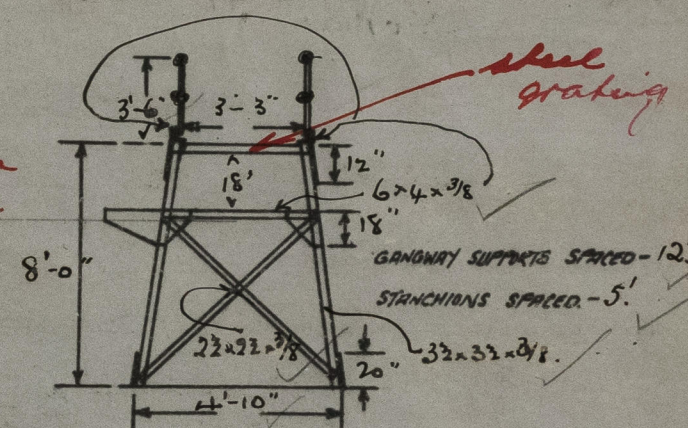 steel
grating
3'-6"
3'-3"
12"
18'
6×4×3/8
18"
8'-0"
GANGWAY SUPPORTS SPACED - 12.
STANCHIONS SPACED. - 5'.
2½×2½×3/8
3½×3½×3/8.
20"
4'-10"